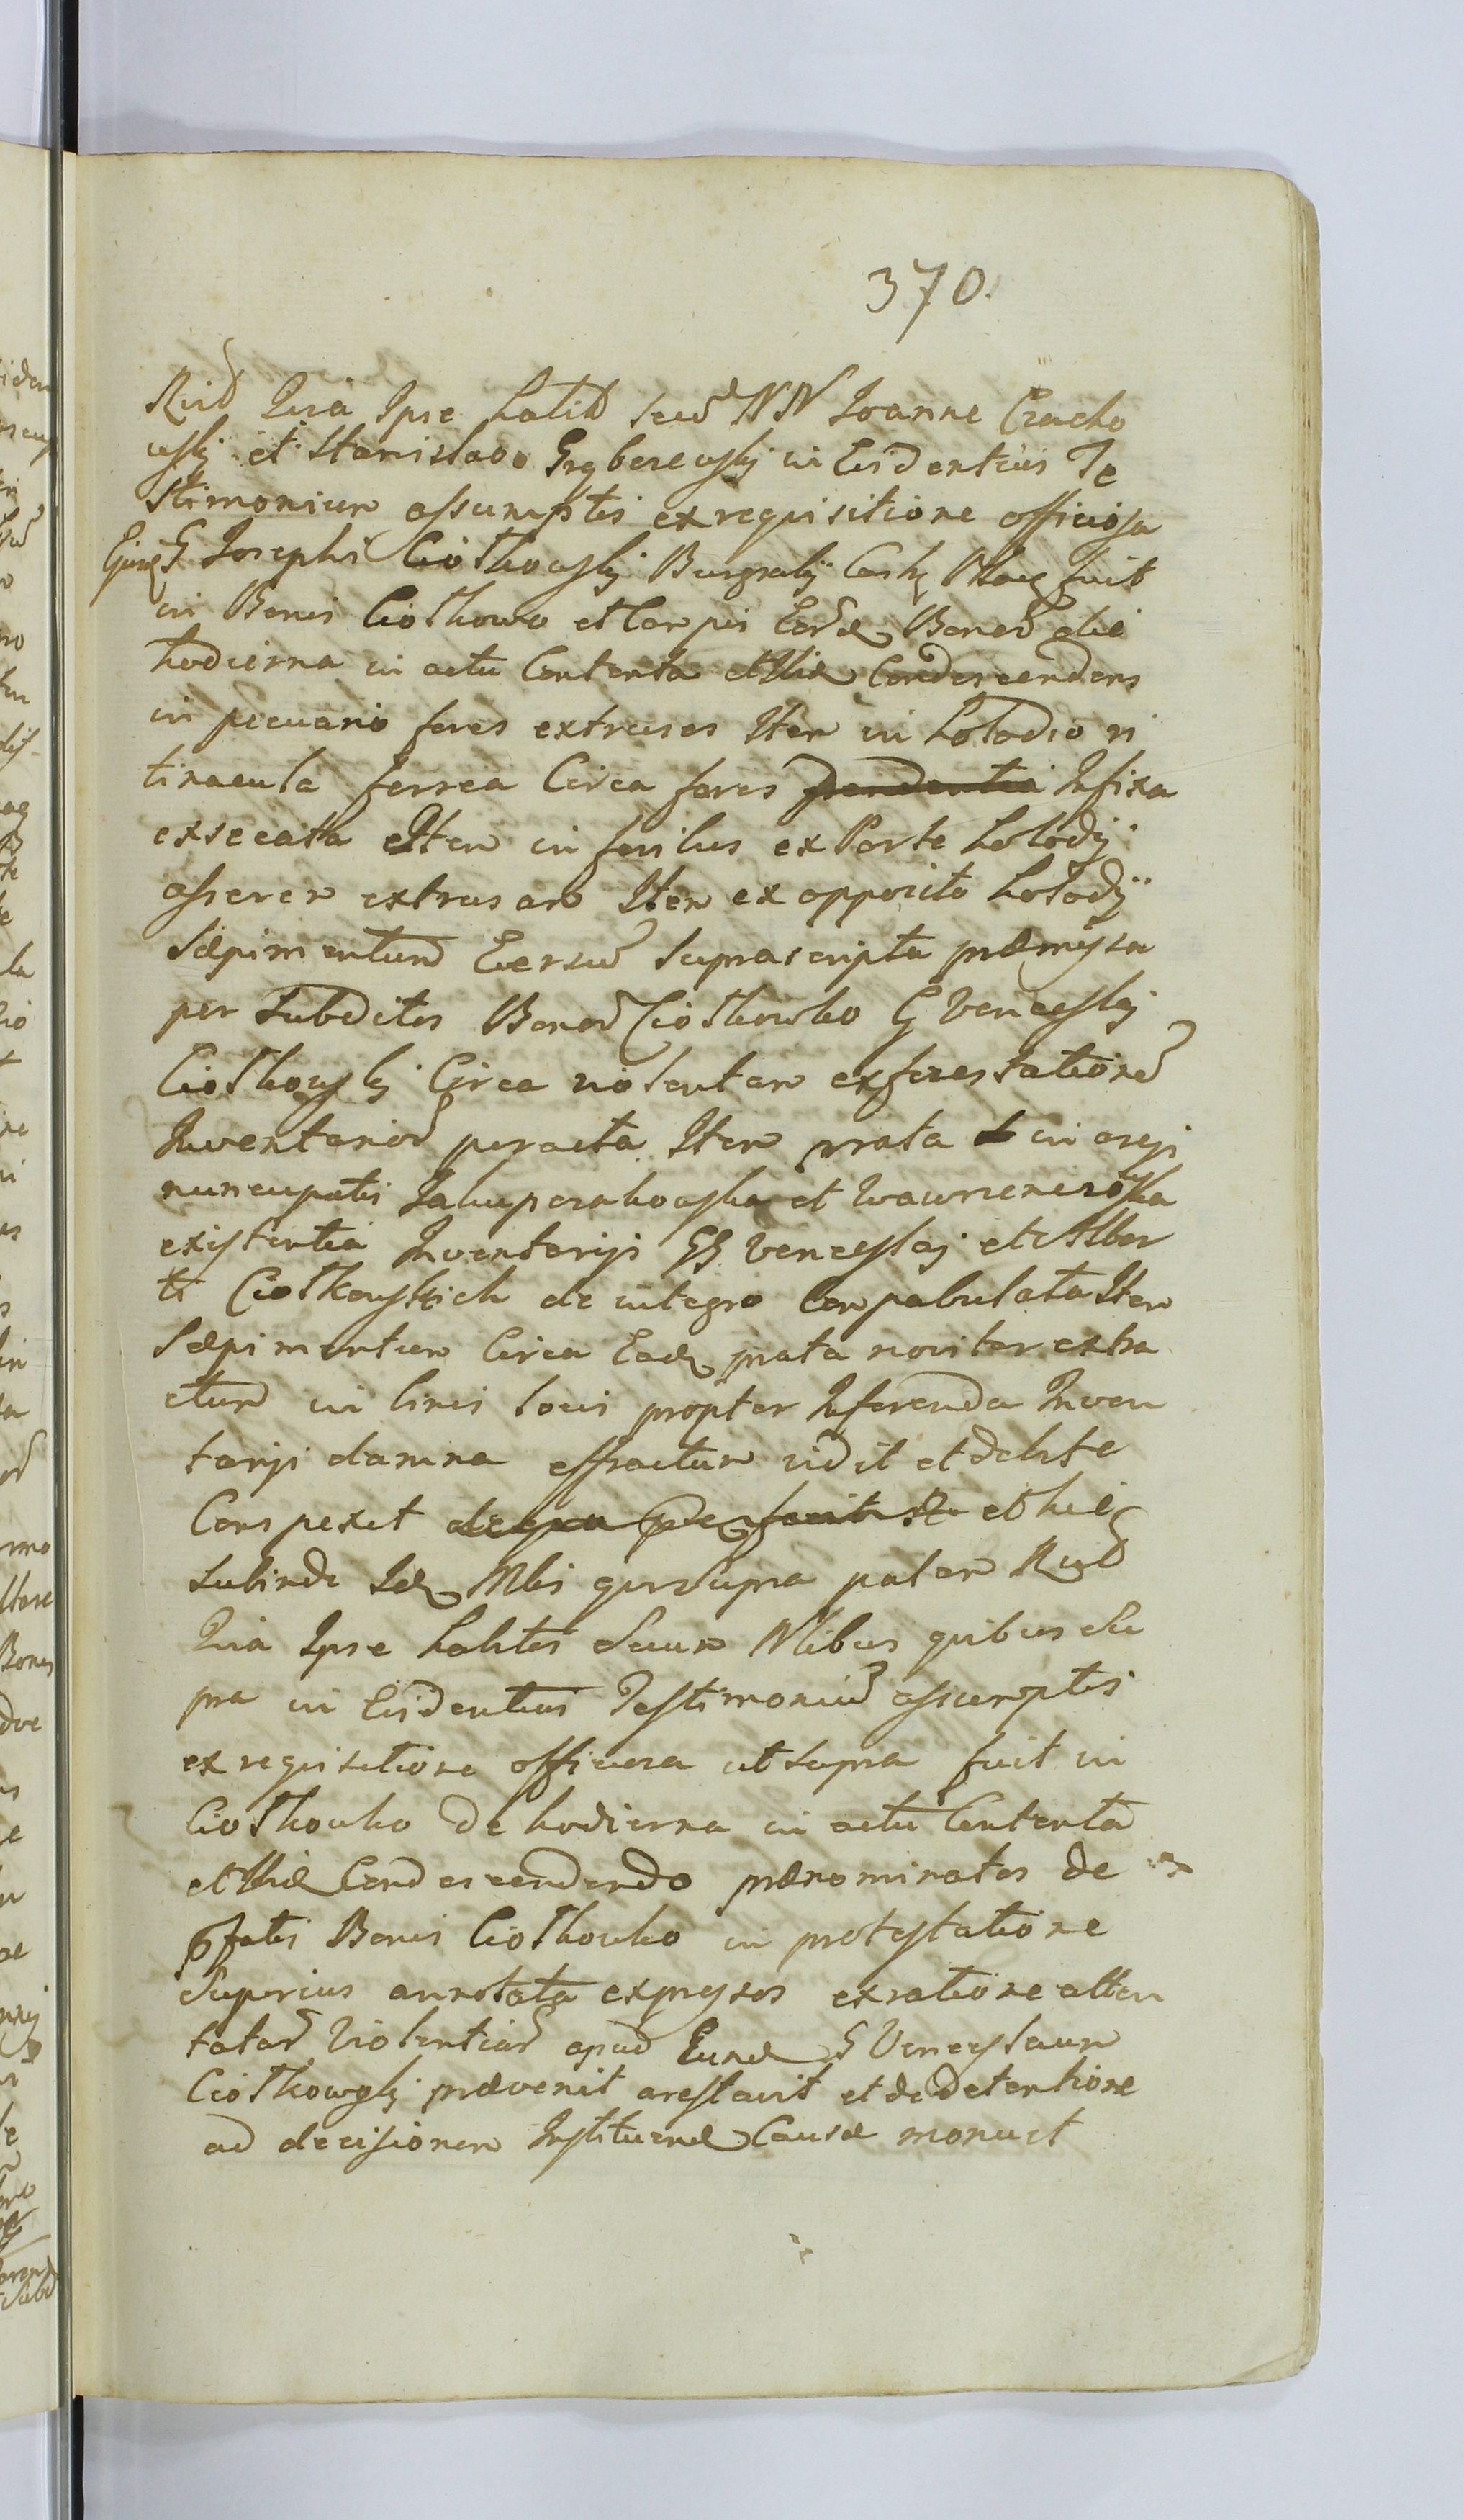 370.
Quia Ipse habit secū NN Joanne Czacho
wskj et Stanislao Grzybowskj in Evidentius Te
stimonium assumptis ex requisitione officiosa
G Josephi Ciołkowskj Burgrabij fuit
in Bonis Ciołkowo et Carpis Bonorū die
hodierna in actu Contenta Condescendens
in pecuario fores extrusas Item in Holodio vi
tinacula ferrea Circa fores pendentia Infixa
exsecata Item in foribus ex Parte holodij
asserem extrusam Item ex opposito holodij
Sæpimentum Eversū Suprascripta præmissa
per Subditos Bonorū Ciołkowko G Venceslaj
Ciołkowskj Circa violentam
Inventariorū peracta Item prata in
nuncupatis et
existentia Inventarijs GG Venceslaj et Alber
ti Ciołkowskich de integro Conpabulata Item
Sæpimentum Circa Ead prata noviter extra
ctum in binis locis propter Inferenda Inven
tarijs damna effractum vidit et debite
Conspexit et
subinde Nbis quo supra palam
Quia Ipse habitis Secum Nbibus quibus Su
pra in Evidentius Testimoniū assumptis
ex requisitione officiosa ut supra fuit in
Ciołkowko de hodierna in actu Contenta
Condescendendo prænominatos de
Bonis Ciołkowko in protestatione
Superius annotata expressos ex ratione atten
tatarū Violentiarū apud Eund G Venceslaum
Ciołkowskj prævenit arestavit et de detentione
ad decisionem Instituend Causæ monuit